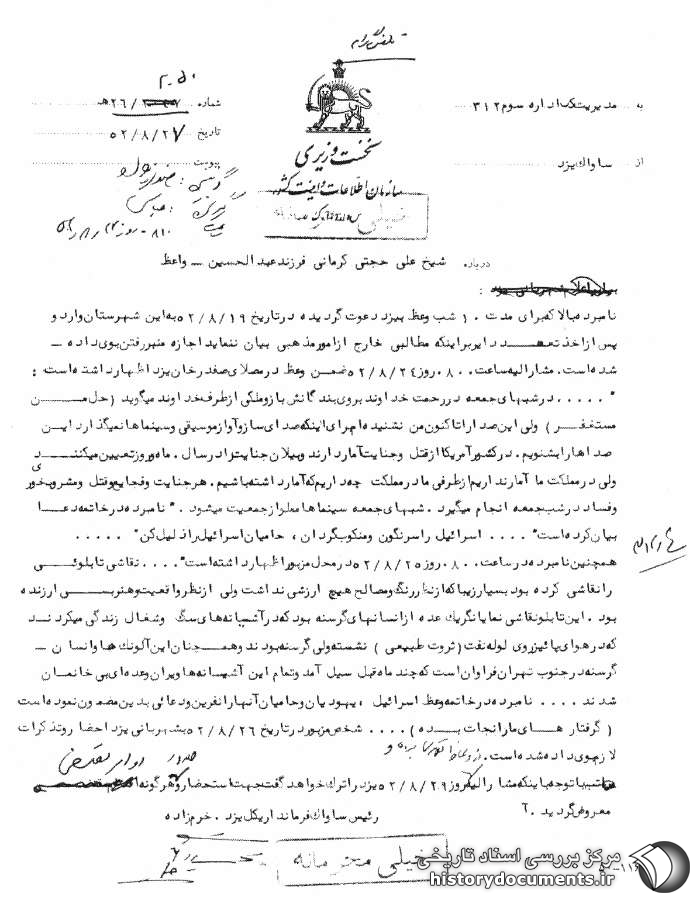 تلفنگرام
به مدیریت کل اداره سوم ۳۱۲
شماره ۲۶/ هـ
تاریخ ۵۲/۸/۲۷
پیوست
از ساواک یزد
نخست وزیری
سازمان اطلاعات و امنیت کشور
خیلی
درباره شیخ علی حجتی کرمانی فرزند عبدالحسین – واعظ
نامبرده بالا که برای مدت ۱۰ شب وعظ بیزد دعوت گردیده در تاریخ ۵۲/۸/۱۹ به این شهرستان وارد و
پس از اخذ تعهد دایر براینکه مطالبی خارج از امور مذهبی بیان ننماید اجازه منبر رفتن بوی داده –
شده است. مشارالیه ساعت ۰۸۰۰ روز ۵۲/۸/۲۴ ضمن وعظ در مصلای صفدرخان یزد اظهار داشته است :
" ..... در شبهای جمعه در رحمت خداوند بروی بندگانش باز و ملکی از طرف خداوند میگوید (حل مـن
مستغفر) ولی این صدا را تاکنون من نشنیده ام برای اینکه صدای ساز و آواز موسیقی و سینماها نمیگذارد این
صداها را بشنویم. در کشور آمریکا از قتل و جنایت آمار دارند و بیلان جنایت را در سال. ماه و روز تعیین میکنند
ولی در مملکت ما آمار نداریم از طرفی ما در مملکت چه داریم که آمار داشته باشیم. هر جنایت و فجایع و قتل و مشروبخوری
و فساد در شب جمعه انجام میگیرد. شبهای جمعه سینماها مملو از جمعیت میشود." نامبرده در خاتمه دعا
بیان کرده است ".... اسرائیل را سرنگون و منکوب گردان، حامیان اسرائیل را ذلیل کن" .....
همچنین نامبرده در ساعت ۰۸۰۰ روز ۵۲/۸/۲۵ در محل مزبور اظهار داشته است ".... نقاشی تابلوئی
را نقاشی کرده بود بسیار زیبا که از نظر رنگ و مصالح هیچ ارزشی نداشت ولی از نظر واقعیت و هنر بسی ارزنده
بود. این تابلو نقاشی نمایانگر یک عده از انسانهای گرسنه بود که در آشیانه های سگ وشغال زندگی میکردند
که در هوای پائیز روی لوله نفت (ثروت طبیعی) نشسته ولی گرسنه بودند و همچنان این آلونک ها و انسان –
گرسنه در جنوب تهران فراوان است که چند ماه قبل سیل آمد و تمام این آشیانه ها ویران و عده ای بی خانمان
شدند .... نامبرده در خاتمه وعظ اسرائیل ، یهودیان و حامیان آنها را نفرین و دعائی بدین مضمون نموده است
(گرفتار های ما را نجات بده) .... شخص مزبور در تاریخ ۵۲/۸/۲۶ بشهربانی یزد احضار و تذکرات
لازم بوی داده شده است.
با توجه باینکه مشارالیه روز ۵۲/۸/۲۹ یزد را ترک خواهد گفت جهت استحضار و هر گونه
معروض گردید. آ
رئیس ساواک فرمانداریکل یزد. خرم زاده
خیلی محرمانه
مرکز بررسی اسناد تاریخی
historydocuments.ir